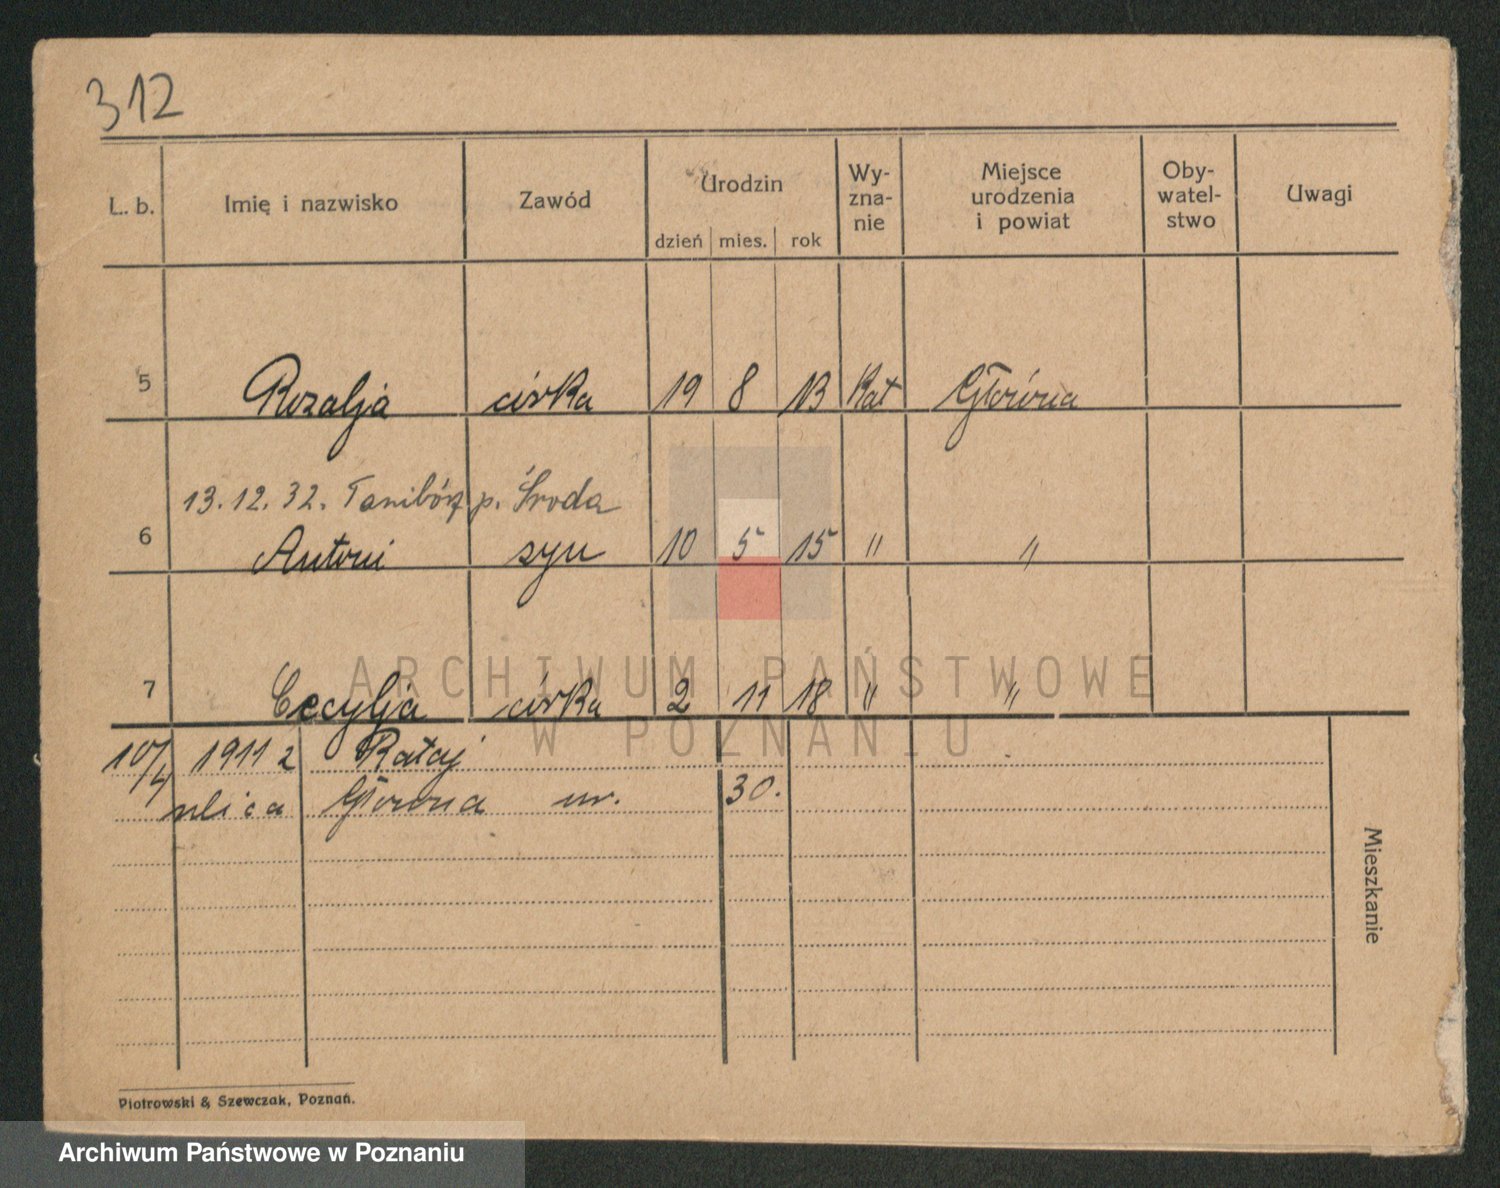 312
L. b. Imię i nazwisko Zawód Urodzin dzień mies. rok Wy-zna-nie Miejsce urodzenia i powiat Oby-watel-stwo Uwagi
5 Rozalja córka 19 8 13 Kat Główna
13.12.32. Tanibórz p. Środa
6 Antoni syn 10 5 15 " "
7 Cecylja córka 2 11 18 " "
ARCHIWUM PAŃSTWOWE
W POZNANIU
10/4 1911 z Rataj
ulica Główna nr. 30.
Mieszkanie
Piotrowski & Szewczak, Poznań.
Archiwum Państwowe w Poznaniu